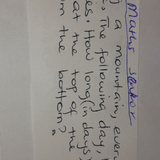 Maths
) a mountain, every
. The following day,
es. How long (in days
at the top of the
m the bottom?